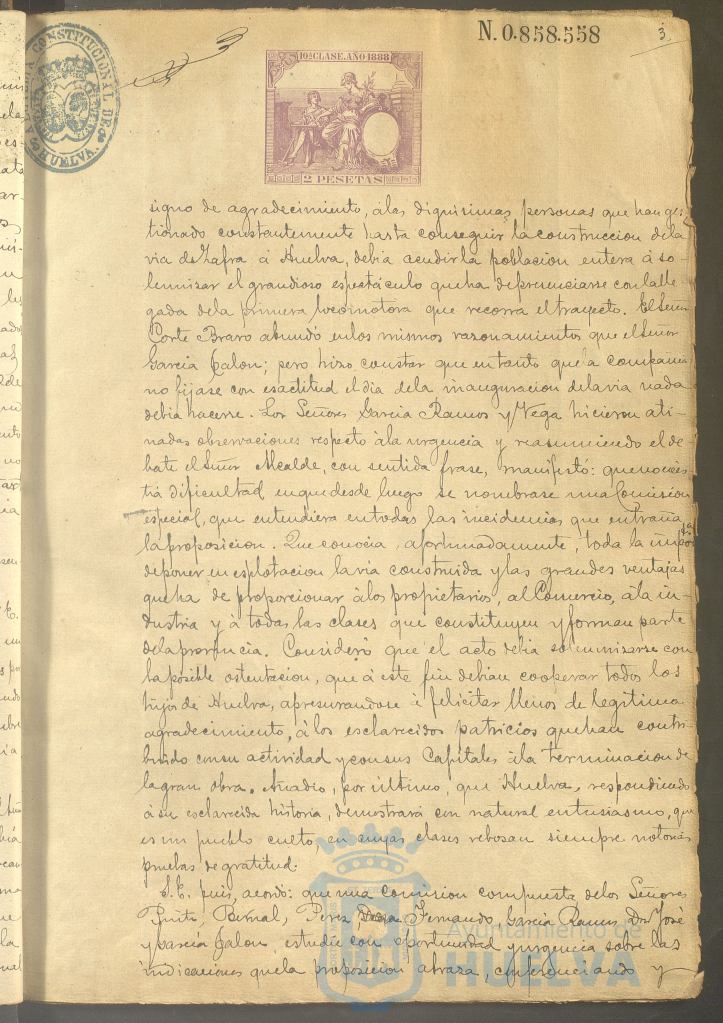 N. 0.858.558
3
10ª CLASE. AÑO 1888
2 PESETAS
CONSTITUCIONAL DE
HUELVA.
signo de agradecimiento, á las dignísimas personas que han ges-
tionado constantemente hasta conseguir la construccion de la
via de Zafra á Huelva, debia acudir la poblacion entera á so-
lemnizar el grandioso espectáculo que ha de presenciarse con la lle-
gada de la primera locomotora que recorra el trayecto. El Señor
Corte Bravo abundó en los mismos razonamientos que el Señor
Garcia Jalon; pero hizo constar que en tanto que la compañia
no fijase con esactitud el dia de la inauguracion de la via nada
debia hacerse. Los Señores Garcia Ramos y Vega hicieron ati-
nadas observaciones respecto á la urgencia y reasumiendo el de-
bate el Señor Alcalde, con sentida frase, manifestó: que no exis-
tia dificultad en que desde luego se nombrase una Comision
especial, que entendiera en todas las incidencias que entraña
la proposicion. Que conocia, afortunadamente, toda la
de poner en esplotacion la via construida y las grandes ventajas
que ha de proporcionar á los propietarios, al Comercio, á la in-
dustria y á todas las clases que constituyen y forman parte
de la provincia. Consideró que el acto debia solemnizarse con
la posible ostentacion, que á este fin debian cooperar todos los
hijos de Huelva, apresurandose á felicitar llenos de legítimo
agradecimiento, á los esclarecidos patricios que han contri-
buido con su actividad y con sus Capitales á la terminacion de
la gran obra. Añadio, por último, que Huelva, respondiendo
á su esclarecida historia, demostrará con natural entusiasmo, que
es un pueblo culto, en cuyas clases rebosan siempre notorias
pruebas de gratitud.
S. E. pues, acordó: que una comision compuesta de los Señores
Bernal, Perez Fernando, Garcia Ramos, Dn José
y Garcia Jalon, estudie con oportunidad y urgencia sobre las
indicaciones que la proposicion abraza, conferenciando y
Ayuntamiento de
HUELVA